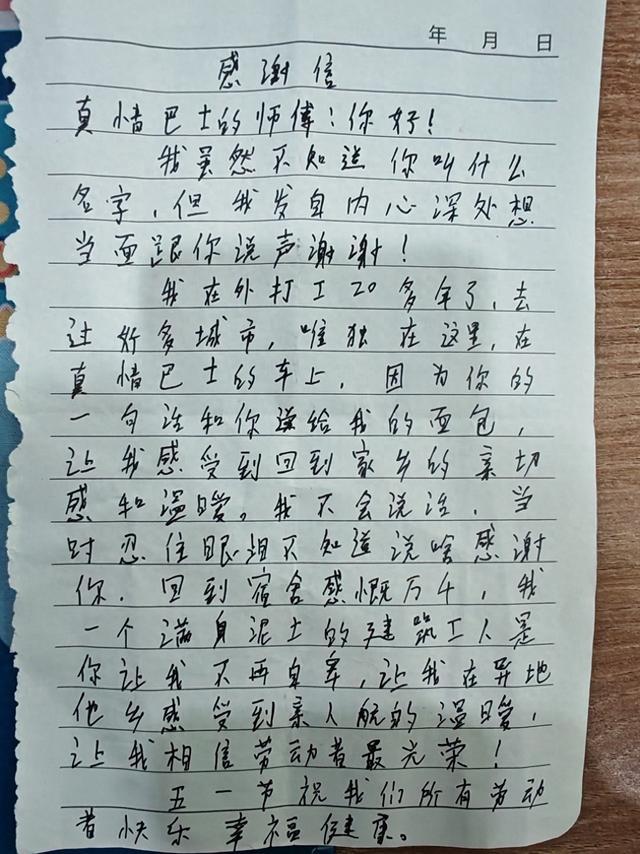 年 月 日
感谢信
真情巴士的师傅:你好!
我虽然不知道你叫什么
名字,但我发自内心深处想
当面跟你说声谢谢!
我在外打工20多年了,去
过好多城市,唯独在这里,在
真情巴士的车上,因为你的
一句话和你递给我的面包,
让我感受到回到家乡的亲切
感和温暖。我不会说话,当
时忍住眼泪不知道说啥感谢
你,回到宿舍感慨万千,我
一个满身泥土的建筑工人是
你让我不再自卑,让我在异地
他乡感受到亲人般的温暖,
让我相信劳动者最光荣!
五一节祝我们所有劳动
者快乐幸福健康。